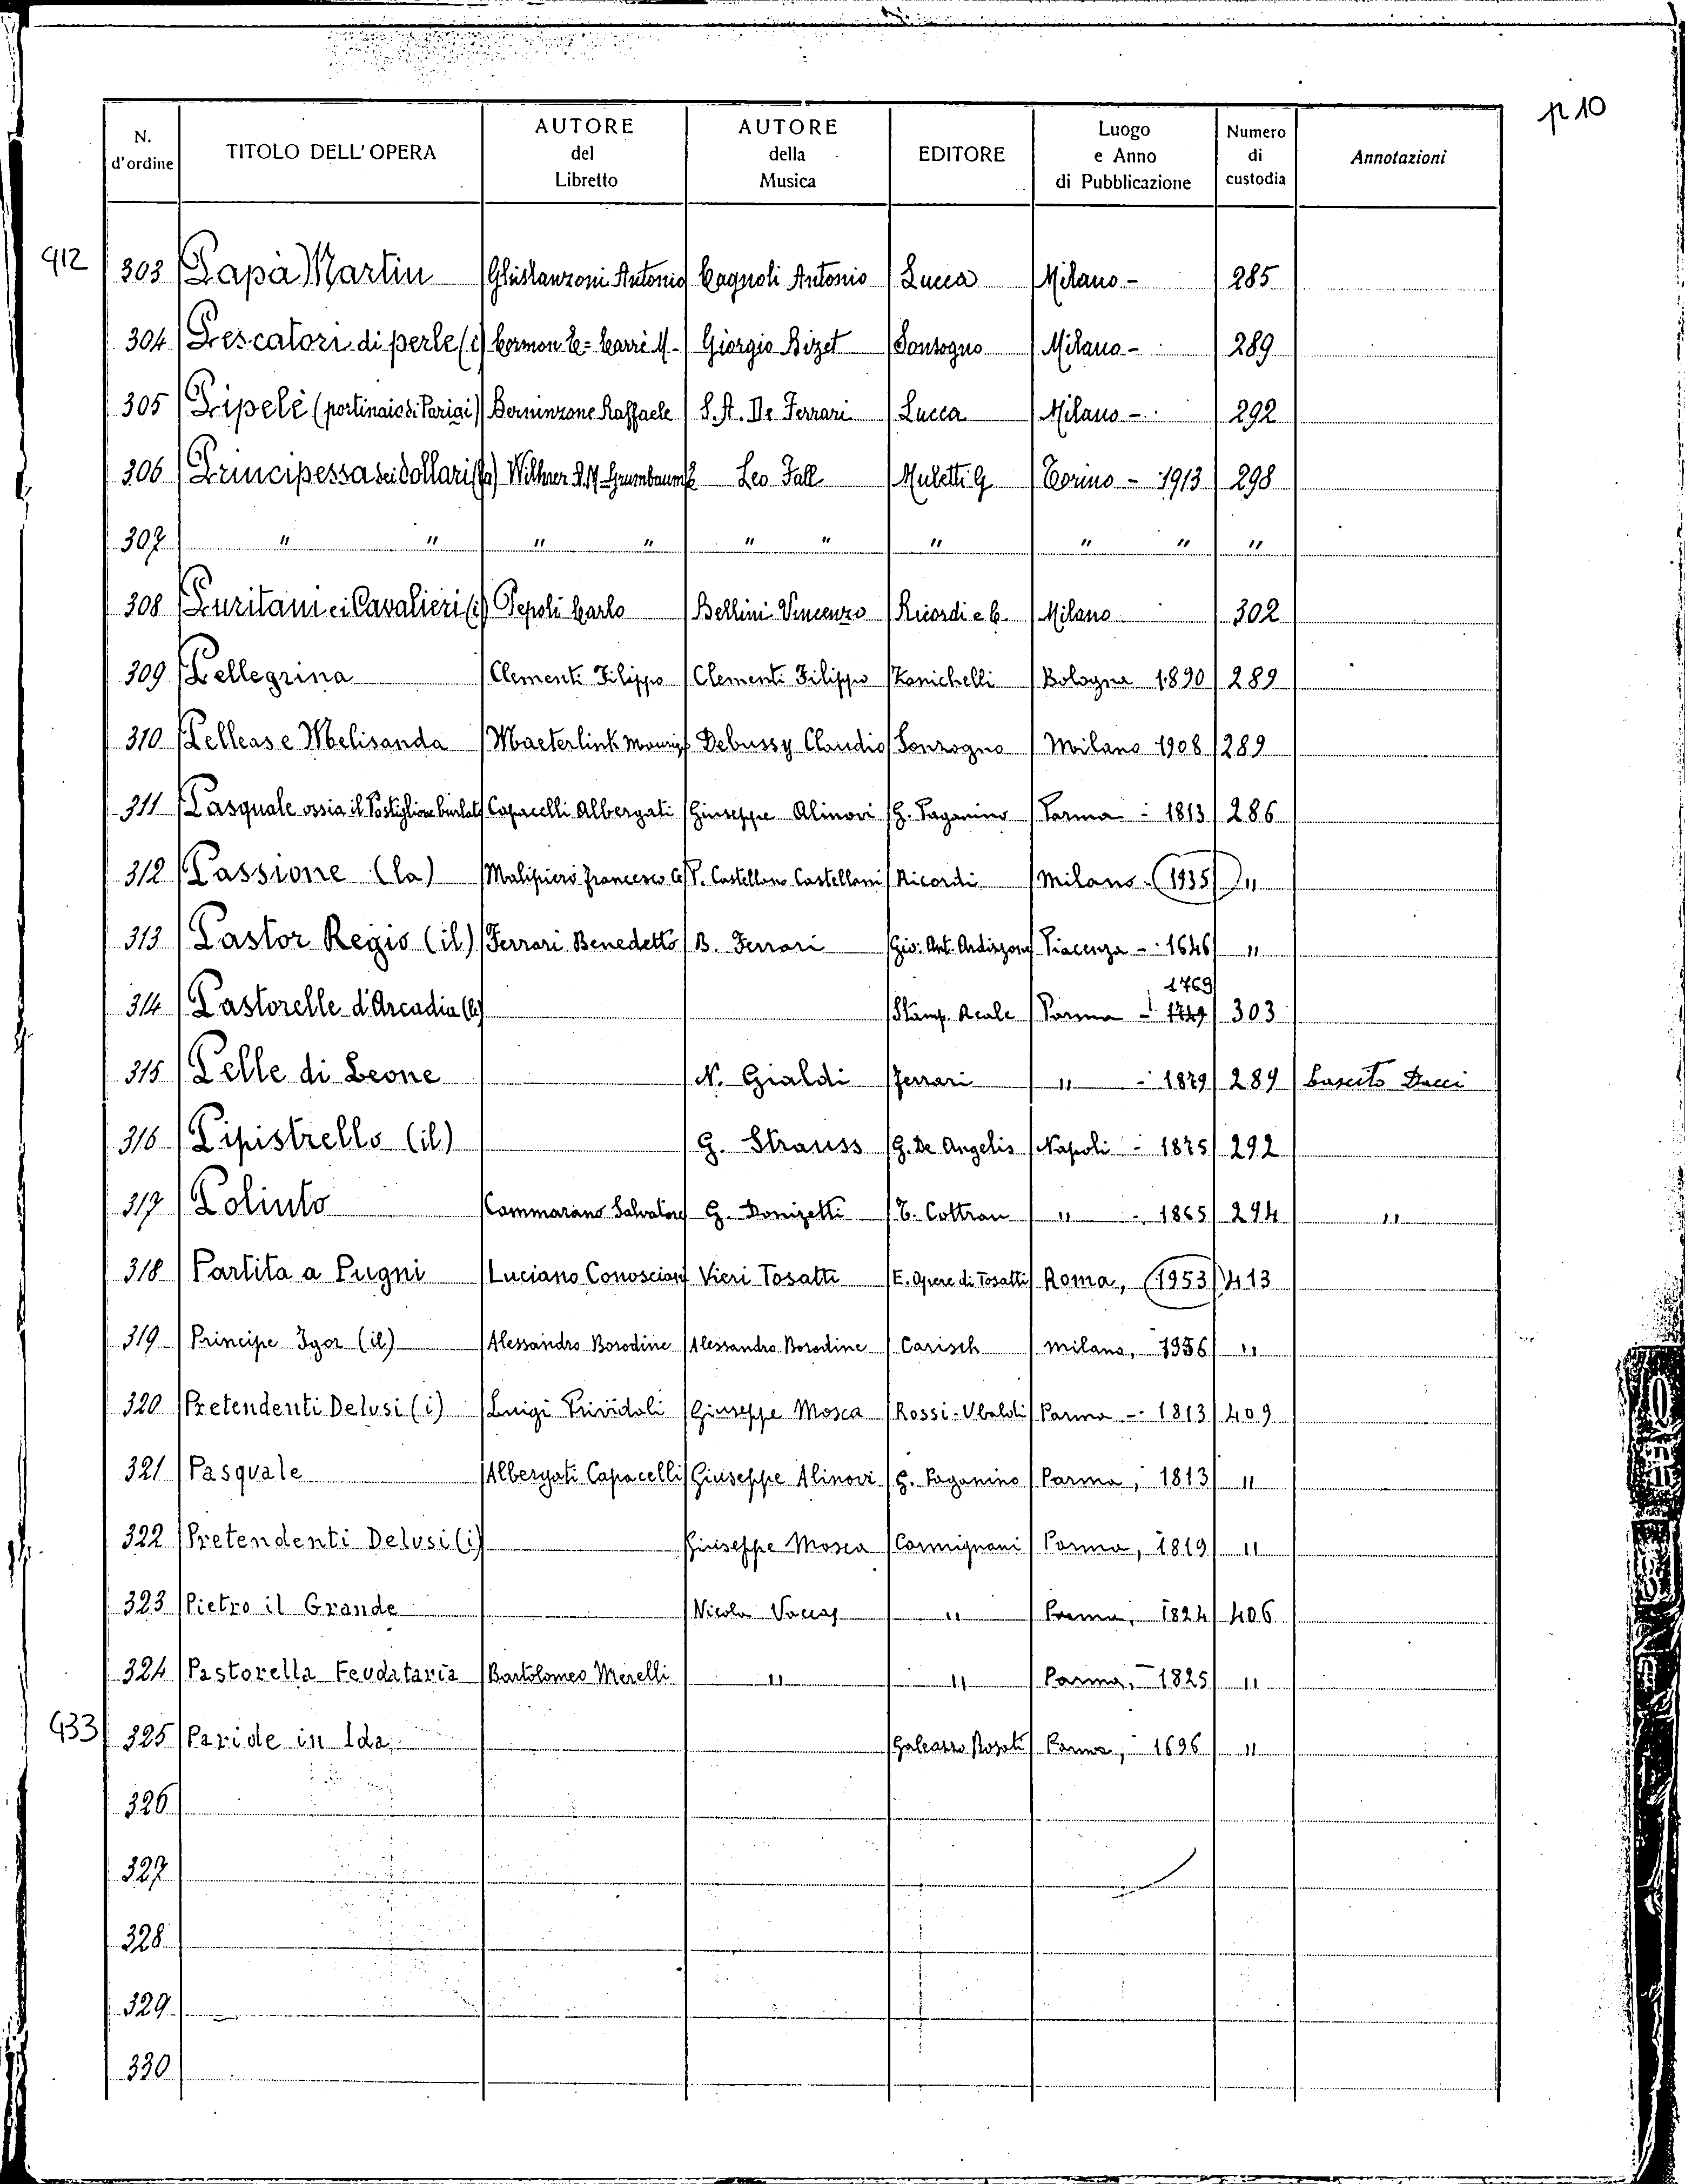 p 10
N. d'ordine | TITOLO DELL'OPERA | AUTORE del Libretto | AUTORE della Musica | EDITORE | Luogo e Anno di Pubblicazione | Numero di custodia | Annotazioni
912 303 Papà Martin Ghislanzoni Antonio Cagnoli Antonio Lucca Milano - 285
304 Pescatori di perle (i) Cormon E = Carré M - Giorgio Bizet Sonzogno Milano - 289
305 Pipelè (portinaio di Parigi) Berninzone Raffaele S. A. De Ferrari Lucca Milano - 292
306 Principessa dei dollari (la) Wilhner A. M - Grumbaum Leo Fall Muletti G Torino - 1913 298
307 " " " " " " " " " "
308 Puritani e i Cavalieri (i) Pepoli Carlo Bellini Vincenzo Ricordi e C. Milano 302
309 Pellegrina Clementi Filippo Clementi Filippo Zanichelli Bologna 1890 289
310 Pelleas e Melisanda Maeterlink Debussy Claudio Sonzogno Milano 1908 289
311 Pasquale ossia il Postiglione burlato Capacelli Albergati Giuseppe Alinovi G. Paganino Parma - 1813 286
312 Passione (la) Malipiero Francesco P. Castellano Castellani Ricordi Milano - 1935 "
313 Pastor Regio (il) Ferrari Benedetto B. Ferrari Gio: Ant. Ardizzone Piacenza - 1646 "
1769
314 Pastorelle d'Arcadia (le) Stamp. Reale Parma - 303
315 Pelle di Leone N. Gialdi Ferrari " - 1879 289 Lascito Dacci
316 Pipistrello (il) G. Strauss G. De Angelis Napoli - 1875 292
317 Poliuto Cammarano Salvatore G. Donizetti T. Cottrau " - 1865 294 "
318 Partita a Pugni Luciano Conosciani Vieri Tosatti E. Opere di Tosatti Roma, 1953 413
319 Principe Igor (il) Alessandro Borodine Alessandro Borodine Carisch Milano, 1956 "
320 Pretendenti Delusi (i) Luigi Prividali Giuseppe Mosca Rossi-Ubaldi Parma - 1813 409
321 Pasquale Albergati Capacelli Giuseppe Alinovi G. Paganino Parma, 1813 "
322 Pretendenti Delusi (i) Giuseppe Mosca Carmignani Parma, 1819 "
323 Pietro il Grande Nicola Vaccaj " Parma, 1824 406
324 Pastorella Feudataria Bartolomeo Merelli " " Parma, - 1825 "
933 325 Paride in Ida Galeazzo Rosati Parma, 1696 "
326
327
328
329
330